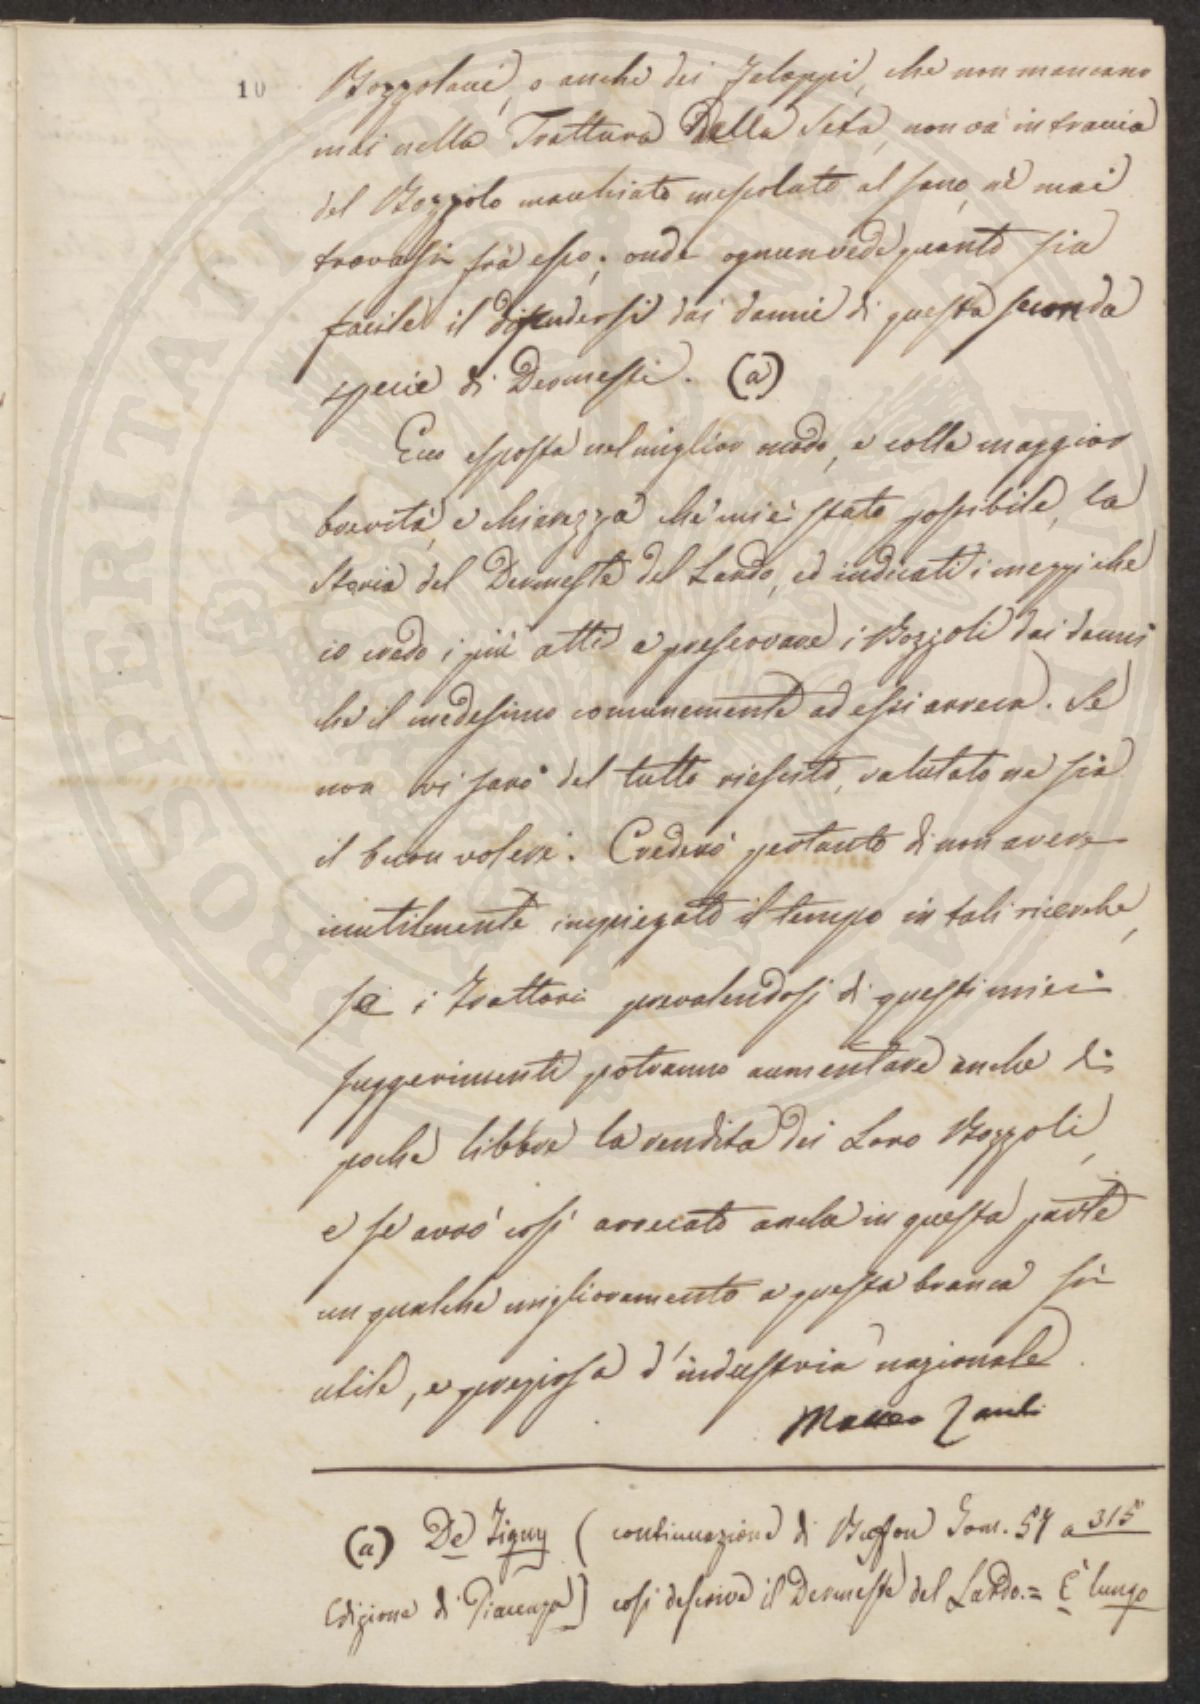 10
Bozzolacci, o anche dei Faloppi, che non mancano
mai nella Trattura della Seta, non va in traccia
del Bozzolo macchiato mescolato al sano, né mai
trovasi frà esso; onde ognun vede quanto sia
facile il difendersi dai danni di questa seconda
specie di Dermesti. (a)
Ecco esposta nel miglior modo, e colla maggior
brevità, e chiarezza che mi è stato possibile, la
Storia del Dermeste del Lardo, ed indicati i mezzi che
io credo i più atti a preservare i Bozzoli dai danni
che il medesimo comunemente ad essi arreca. Se
non vi sarò del tutto riescito, valutato ne sia
il buon volere. Crederò pertanto di non avere
inutilmente impiegato il tempo in tali ricerche,
se i Trattori prevalendosi di questi miei
suggerimenti potranno aumentare anche di
poche libbre la vendita dei Loro Bozzoli,
e se avrò così arrecato anche in questa parte
un qualche miglioramento a questa branca sì
utile, e pregiosa d'industria nazionale.
Matteo
(a) De Tigny (continuazione di Buffon Tom. 57 a 315
Edizione di Piacenza) così descrive il Dermeste del Lardo.= È lungo
PROSPERITATI PUBLICAE AUGENDAE